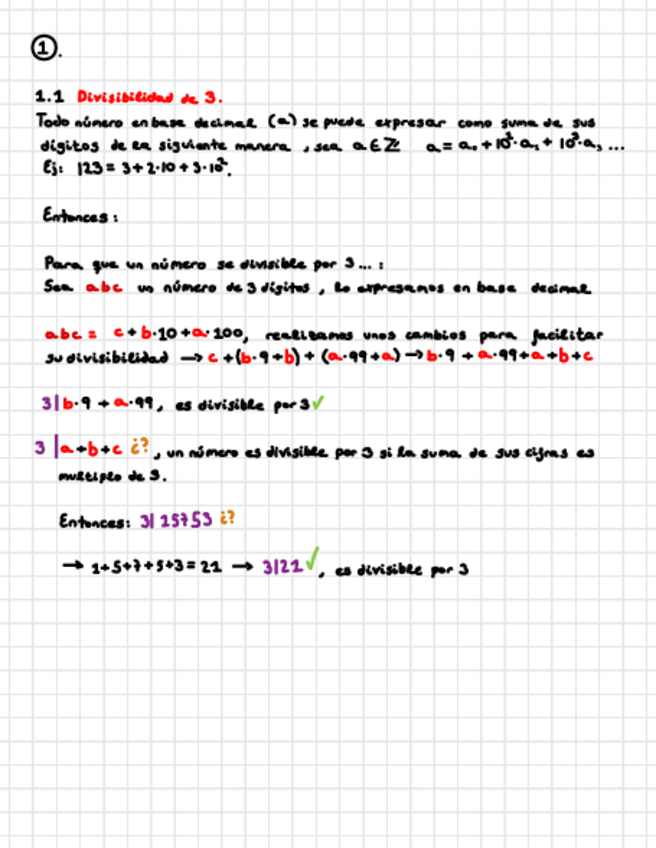 1.
1.1 Divisibilidad de 3.
Todo número en base decimal (a) se puede expresar como suma de sus
dígitos de la siguiente manera, sea a ∈ ℤ a = a₀ + 10¹·a₁ + 10²·a₂ ...
Ej: 123 = 3 + 2·10 + 3·10².
Entonces:
Para que un número se divisible por 3...:
Sea abc un número de 3 dígitos, lo expresamos en base decimal
abc = c + b·10 + a·100, realizamos unos cambios para facilitar
su divisibilidad → c + (b·9+b) + (a·99+a) → b·9 + a·99+a+b+c
3|b·9 + a·99, es divisible por 3 ✓
3 |a+b+c ¿?, un número es divisible por 3 si la suma de sus cifras es
multiplo de 3.
Entonces: 3| 15753 ¿?
→ 1+5+7+5+3 = 21 → 3|21 ✓, es divisible por 3